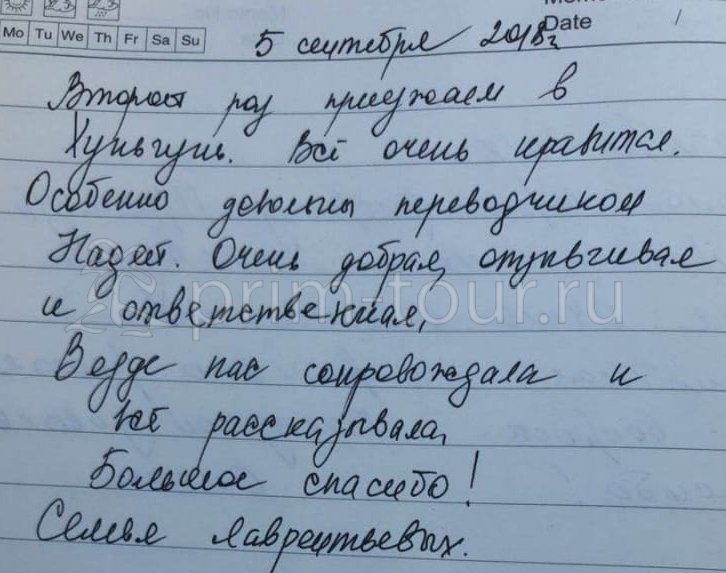 Memo No.
Date /
Mo Tu We Th Fr Sa Su
5 сентября 2018г
Второй раз приезжаем в
Хуньчунь. Всё очень нравится.
Особенно довольны переводчиком
Надей. Очень добрая, отзывчивая
и ответственная,
Везде нас сопровождала и
всё рассказывала,
Большое спасибо!
Семья Лаврентьевых.
prim-tour.ru